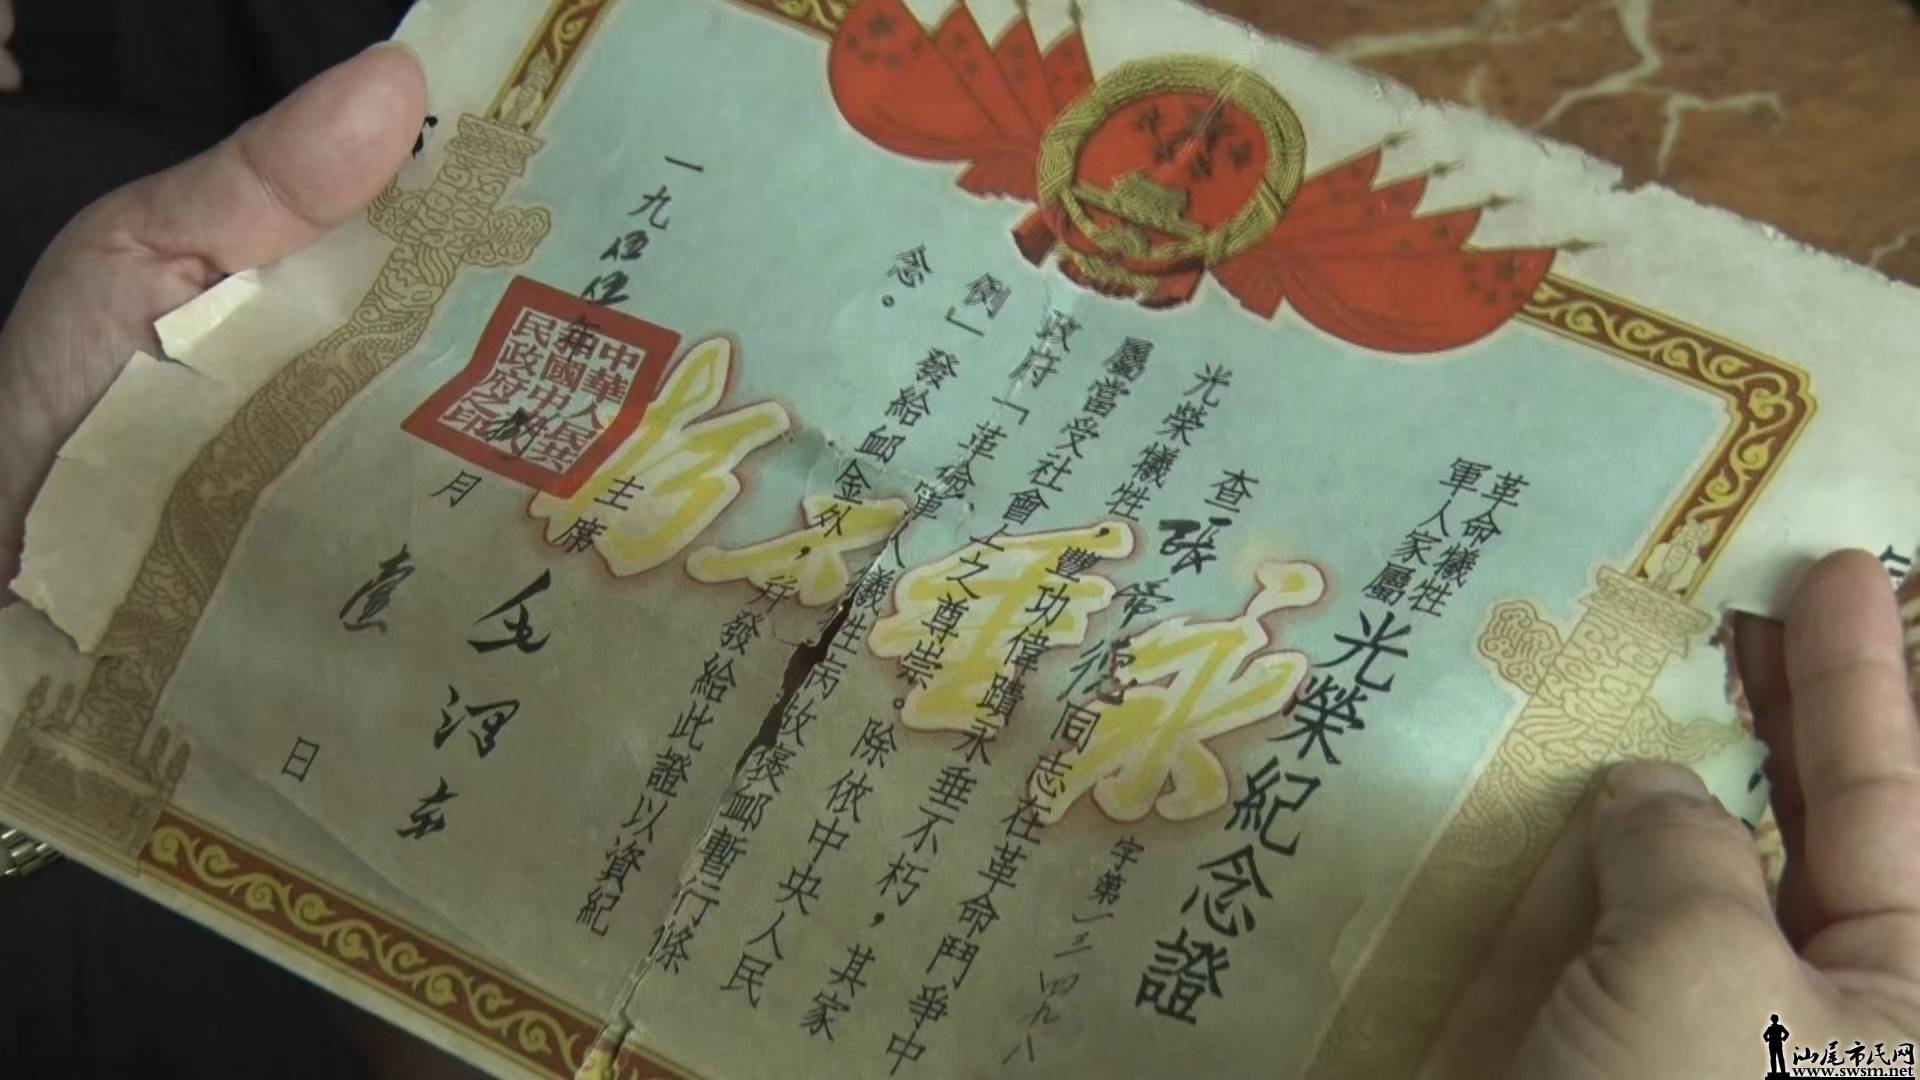 革命犧牲
軍人家屬
光榮紀念證
字第
查張帝德同志在革命鬥爭中
光榮犧牲，豐功偉蹟永垂不朽，其家
屬當受社會上之尊崇。除依中央人民
政府「革命軍人犧牲病故褒卹暫行條
例」發給卹金外，并發給此證以資紀
念。
永垂不朽
主席
毛澤東
一九伍伍年
月壹日
中華人民共
和國中央人
民政府之印
汕尾市民网
www.swsm.net